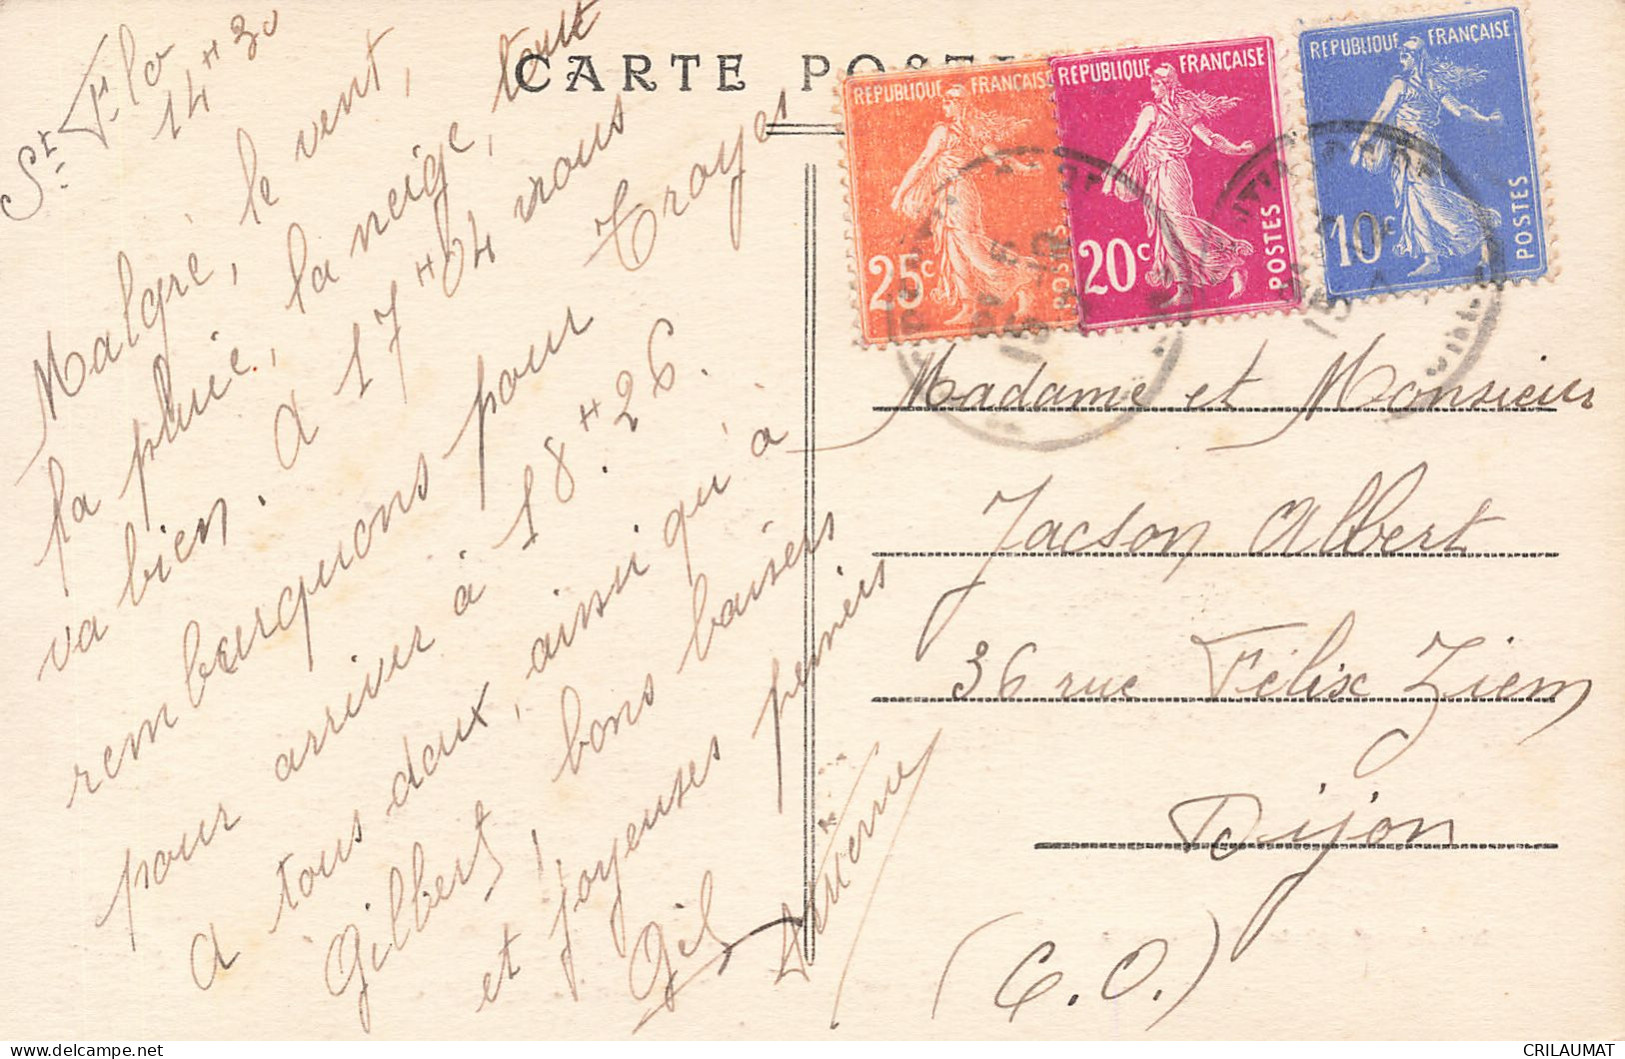 St Flo
14H30
Malgré, le vent,
la pluie, la neige, tout
va bien. A 17H04 nous
rembarquons pour Troyes
pour arriver à 18H26.
A tous deux, ainsi qu'à
Gilbert, bons baisers
et joyeuses
Gil
CARTE
REPUBLIQUE FRANÇAISE
25c
POSTES
REPUBLIQUE FRANÇAISE
20c
POSTES
REPUBLIQUE FRANÇAISE
10c
POSTES
Madame et Monsieur
Jacson Albert
36 rue Félix Ziem
Dijon
(C.O.)
CRILAUMAT